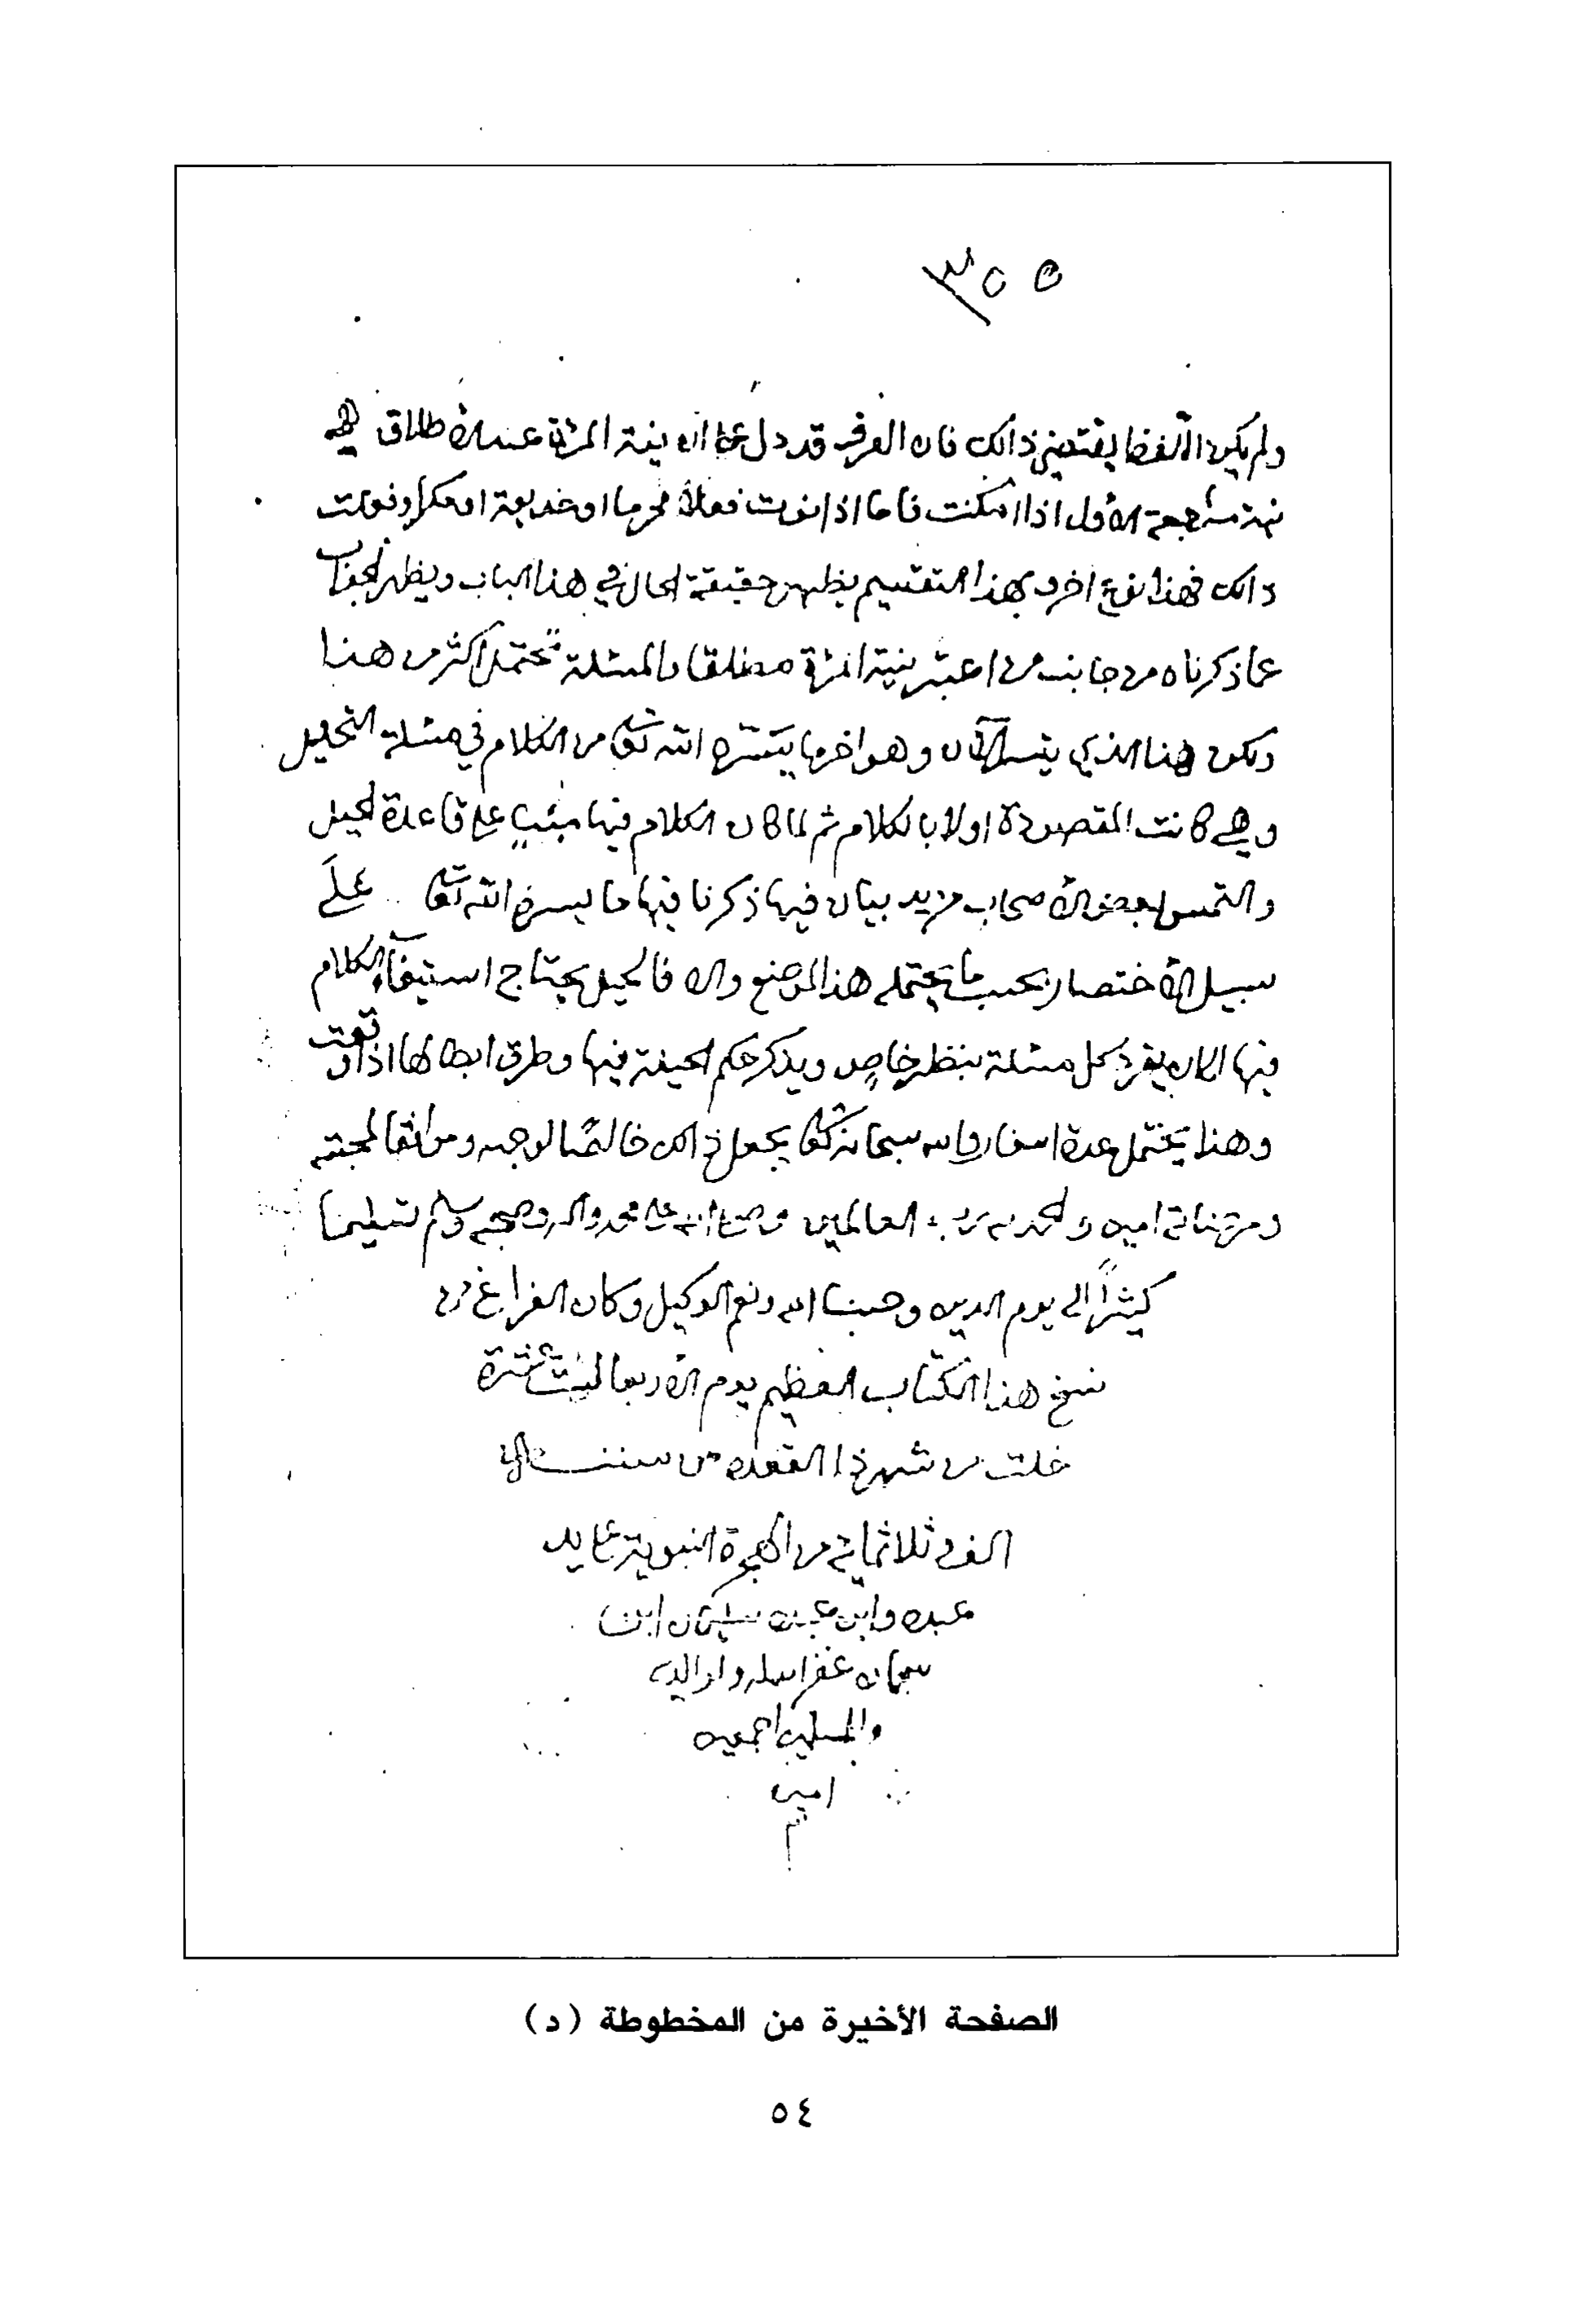 ٣٥٥
ولم يكن اللفظ يقتضي ذالك فان العرف قد دل على ان نية المرئة طلاق
نية مراجعة الأول اذا امكنت فاما اذا نوت فعلا محرما او خديعة او مكرا وفعلت
ذالك فهذا نوع اخر وبهذا التقسيم يظهر حقيقة الحال في هذا الباب ويظهر الجواب
عما ذكرناه من جانب من اعتبر نية المرئة مطلقا والمسئلة تحتمل اكثر من هذا
ولكن هذا الذي تيسر الآن وهو اخر ما يسره الله تعالى من الكلام في مسئلة التحليل
وهي كانت المقصودة اولا بالكلام ثم لما كان الكلام فيها مبنيا على قاعدة الحيل
والتمس بعض الأصحاب مزيد بيان فيها ذكرنا فيها ما يسره الله تعالى على
سبيل الأختصار بحسب ما يحتمله هذا الموضع والا فالحيل يحتاج استيفآء الكلام
فيها الا ان يفرد كل مسئلة بنظر خاص ويذكر حكم الحيلة فيها وطرق ابطالها اذا وقعت
وهذا يحتمل عدة اسفار والله سبحانه وتعالى يجعل ذالك خالصا لوجهه وموافقا لمحبته
ومرضاته امين والحمد لله رب العالمين وصلى الله على محمد واله وصحبه وسلم تسليما
كثيراً الى يوم الدين وحسبنا الله ونعم الوكيل وكان الفراغ من
نسخ هذا الكتاب العظيم يوم الأربعا عشرة
خلت من شهر ذا القعده من سنة
الف وثلاثمائة من الهجرة النبوية على يد
عبده وابن عبده سليمان ابن
سحمان غفر الله له ولوالديه
والمسلمين اجمعين
امين
م
الصفحة الأخيرة من المخطوطة (د)
٥٤